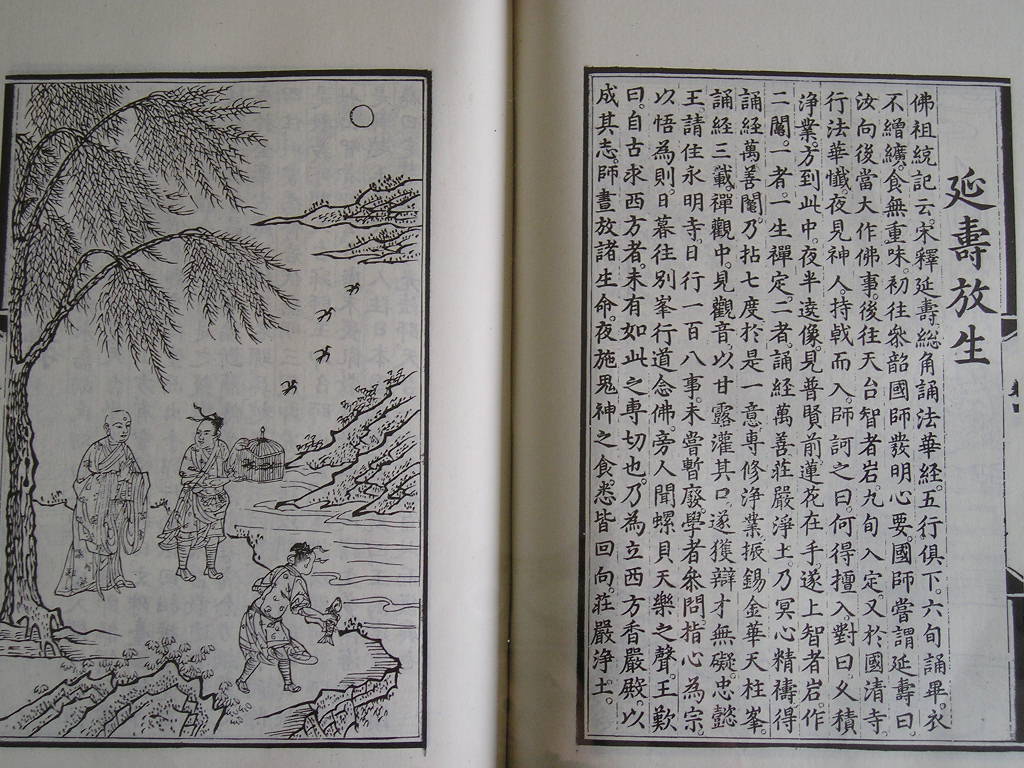 延壽放生
佛祖統記云。宋釋延壽。總角誦法華經。五行俱下。六旬誦畢。衣
不繒纊。食無重味。初往參韶國師。發明心要。國師嘗謂延壽曰。
汝向後當大作佛事。後往天台智者岩。九旬入定。又於國清寺
行法華懺。夜見神人持戟而入。師訶之曰。何得擅入。對曰。久積
淨業。方到此中。夜半遶像。見普賢前蓮花在手。遂上智者岩。作
二鬮。一者。一生禪定。二者。誦經萬善莊嚴淨土。乃冥心精禱。得
誦經萬善鬮。乃拈七度。於是一意專修淨業。振錫金華天柱峯。
誦經三載。禪觀中。見觀音。以甘露灌其口。遂獲辯才無礙。忠懿
王請住永明寺。日行一百八事。未嘗暫廢。學者參問。指心為宗。
以悟為則。日暮往別峯。行道念佛。旁人聞螺貝天樂之聲。王歎
曰。自古求西方者。未有如此之專切也。乃為立西方香嚴殿。以
成其志。師晝放諸生命。夜施鬼神之食。悉皆回向。莊嚴淨土。